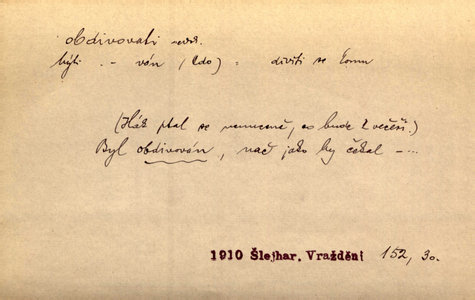 obdivovati nedk.
býti . – ván (kdo) = diviti se komu
(Háž ptal se nemírně, co bude k večeři.)
Byl obdivován, nač jako by čekal – ...
1910 Šlejhar. Vraždění 152, 30.